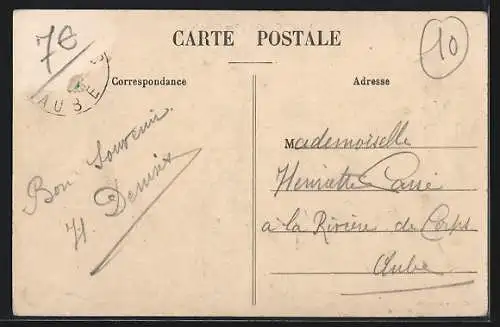 7€
CARTE POSTALE
10
AUBE
Correspondance
Adresse
Bon Souvenir
H.
Mademoiselle
Henriette
à la Rivière de Corps
Aube